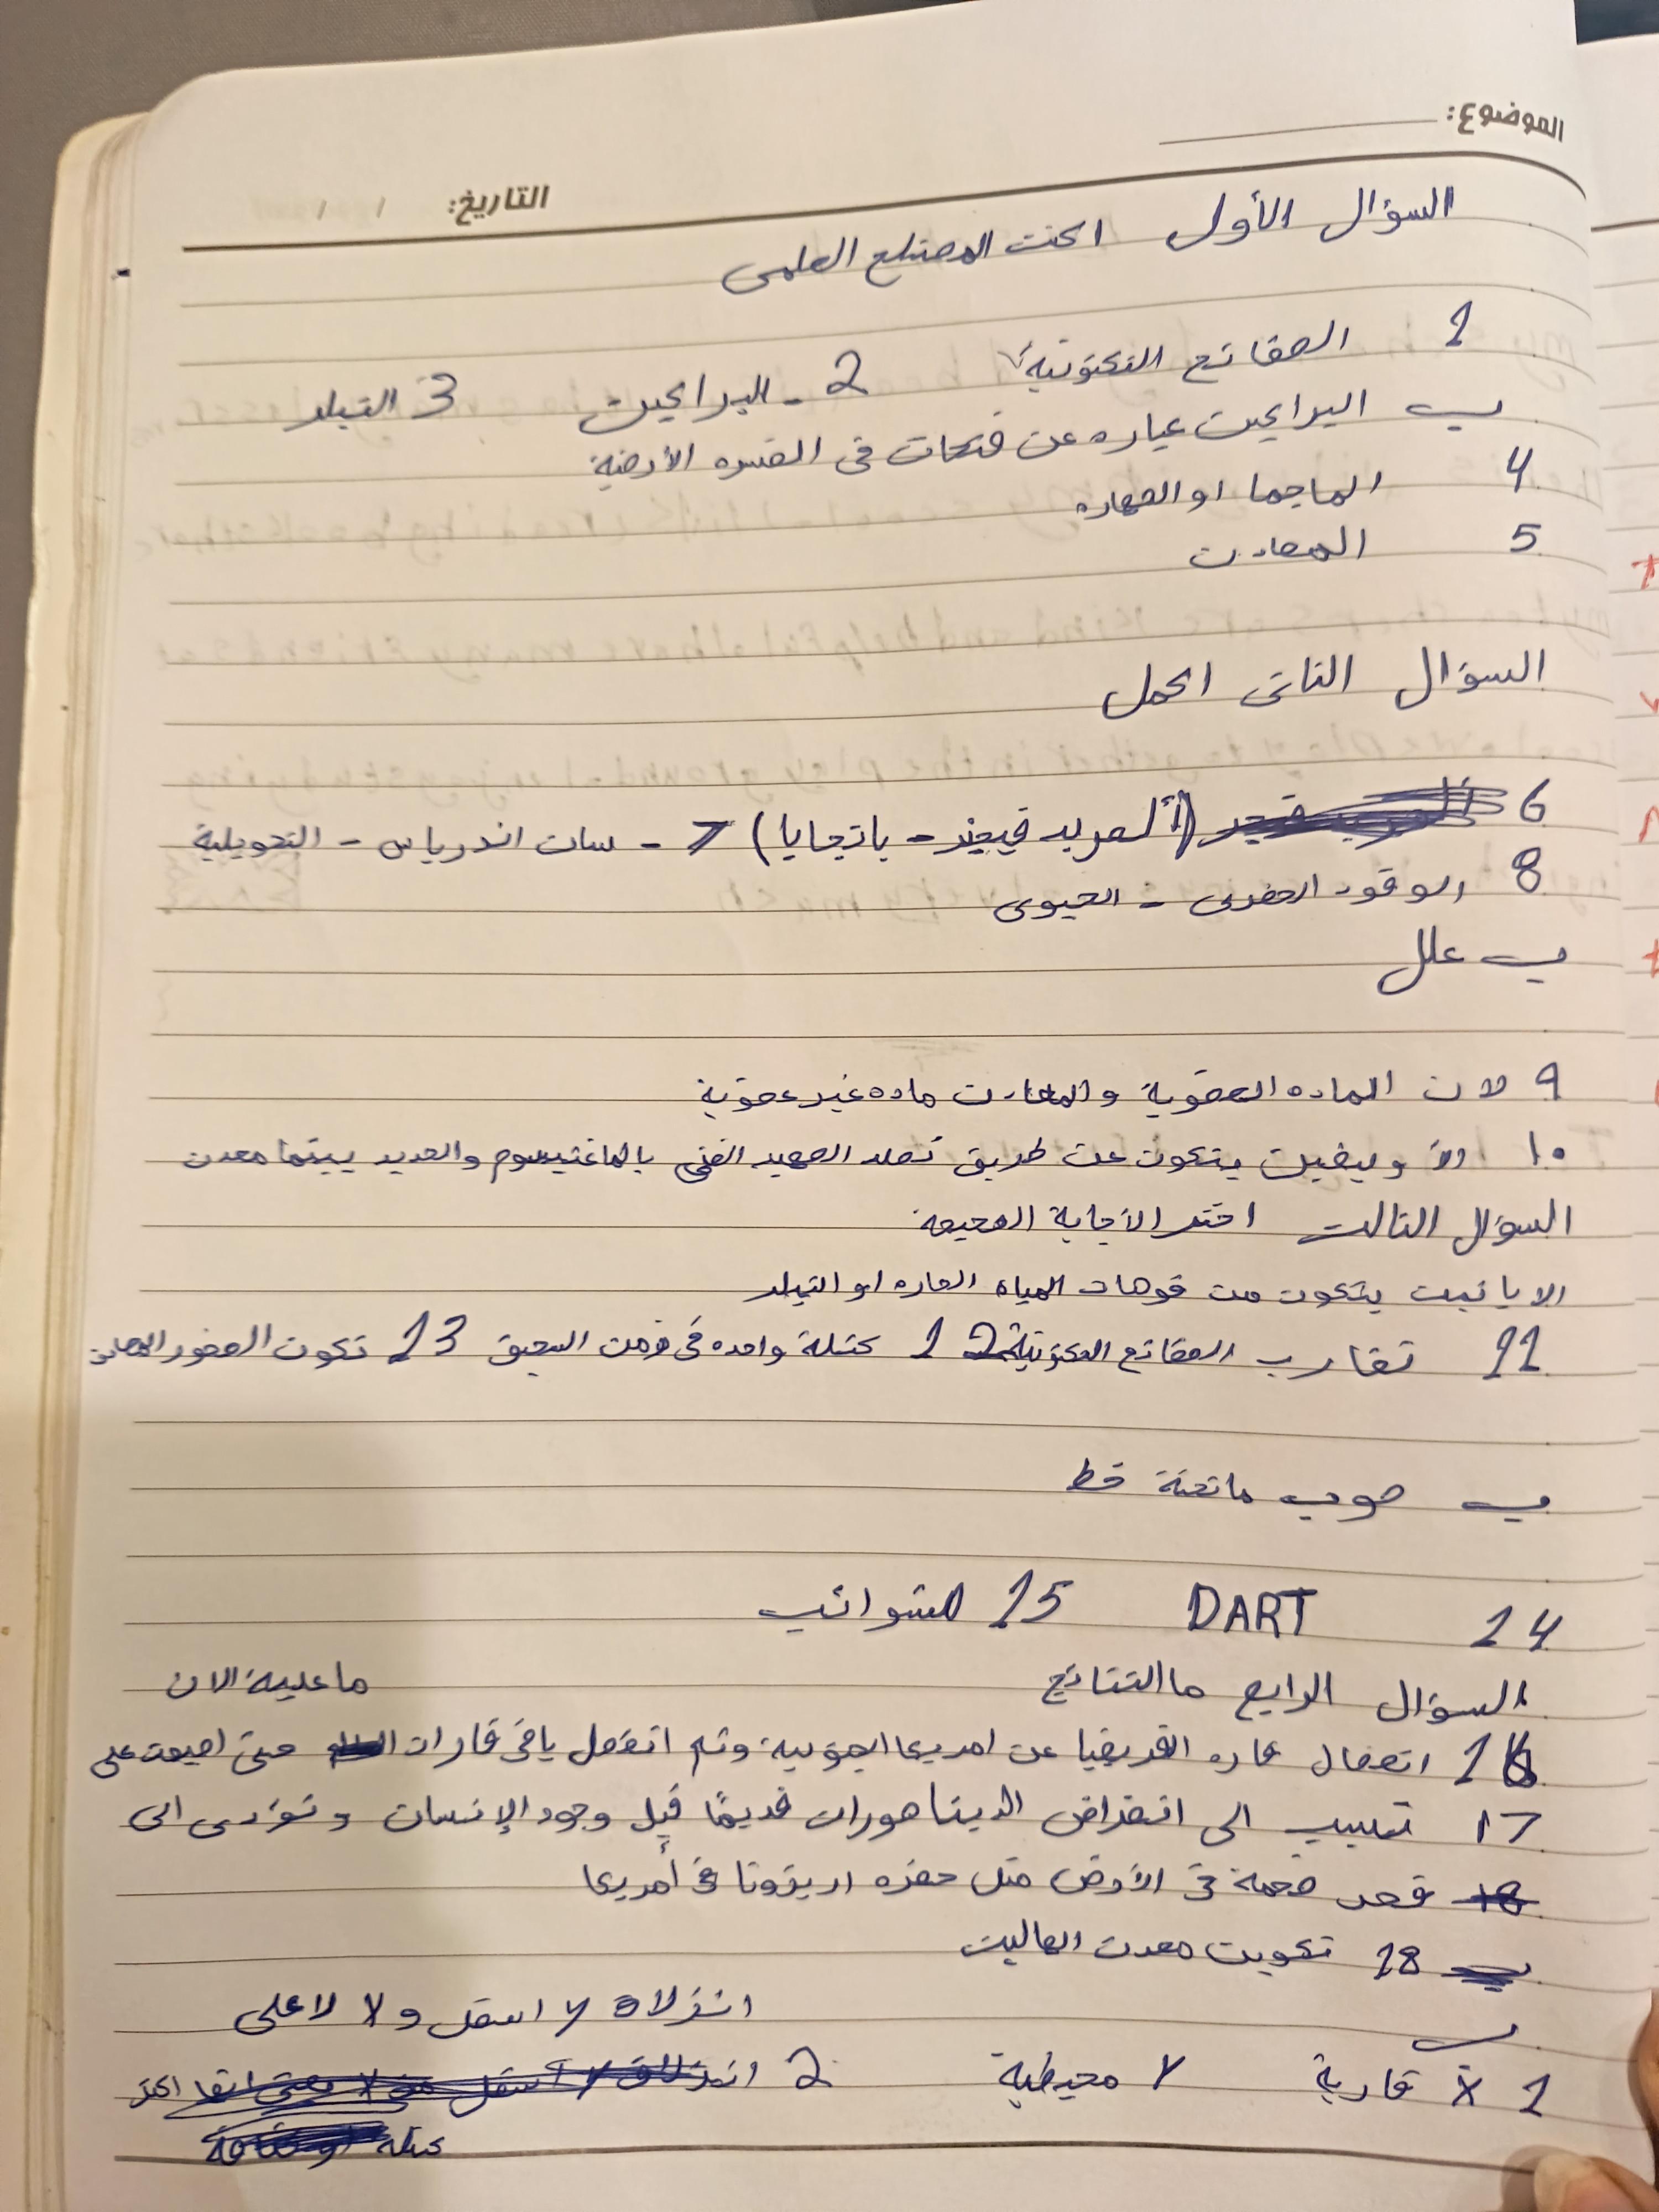 الموضوع:
التاريخ: / /
السؤال الأول اكتب المصطلح العلمى
1 الصفائح التكتونية 2 - البراكين 3 التبلر
ب البراكين عباره عن فتحات فى القشره الأرضية
4 الماجما او الصهاره
5 المعادن
السؤال الثانى اكمل
6 (ألفريد فيجنر - بانجايا) 7 - سان اندرياس - التحويلية
8 الوقود الحفرى - الحيوى
ب علل
9 لان الماده العضوية والمعادن ماده غير عضوية
10 الاوليفين يتكون عن طريق تصلد الصهير الغنى بالماغنيسيوم والحديد بينما معدن
السؤال الثالث اختر الأجابة الصحيحة
الاباتيت يتكون من فوهات المياه الحاره او التبلر
11 تقارب الصفائح التكتونية 12 كتلة واحده فى زمن السحيق 13 تكون الصخور المعادن
ب صوب ما تحتة خط
14 DART 15 الشوائب
السؤال الرابع ما النتائج ما علية الان
16 انفصال قاره افريقيا عن امريكا الجنوبية وتم انفصل باقى قارات حتى اصبحت على
17 تسبب الى انقراض الديناصورات قديمًا قبل وجود الإنسان وتؤدى الى
حفر ضخمة فى الأرض مثل حفره اريزونا فى أمريكا
18 تكوين معدن الهاليت
ب انزلاق y اسفل و x لاعلى
1 x قارية y محيطية 2